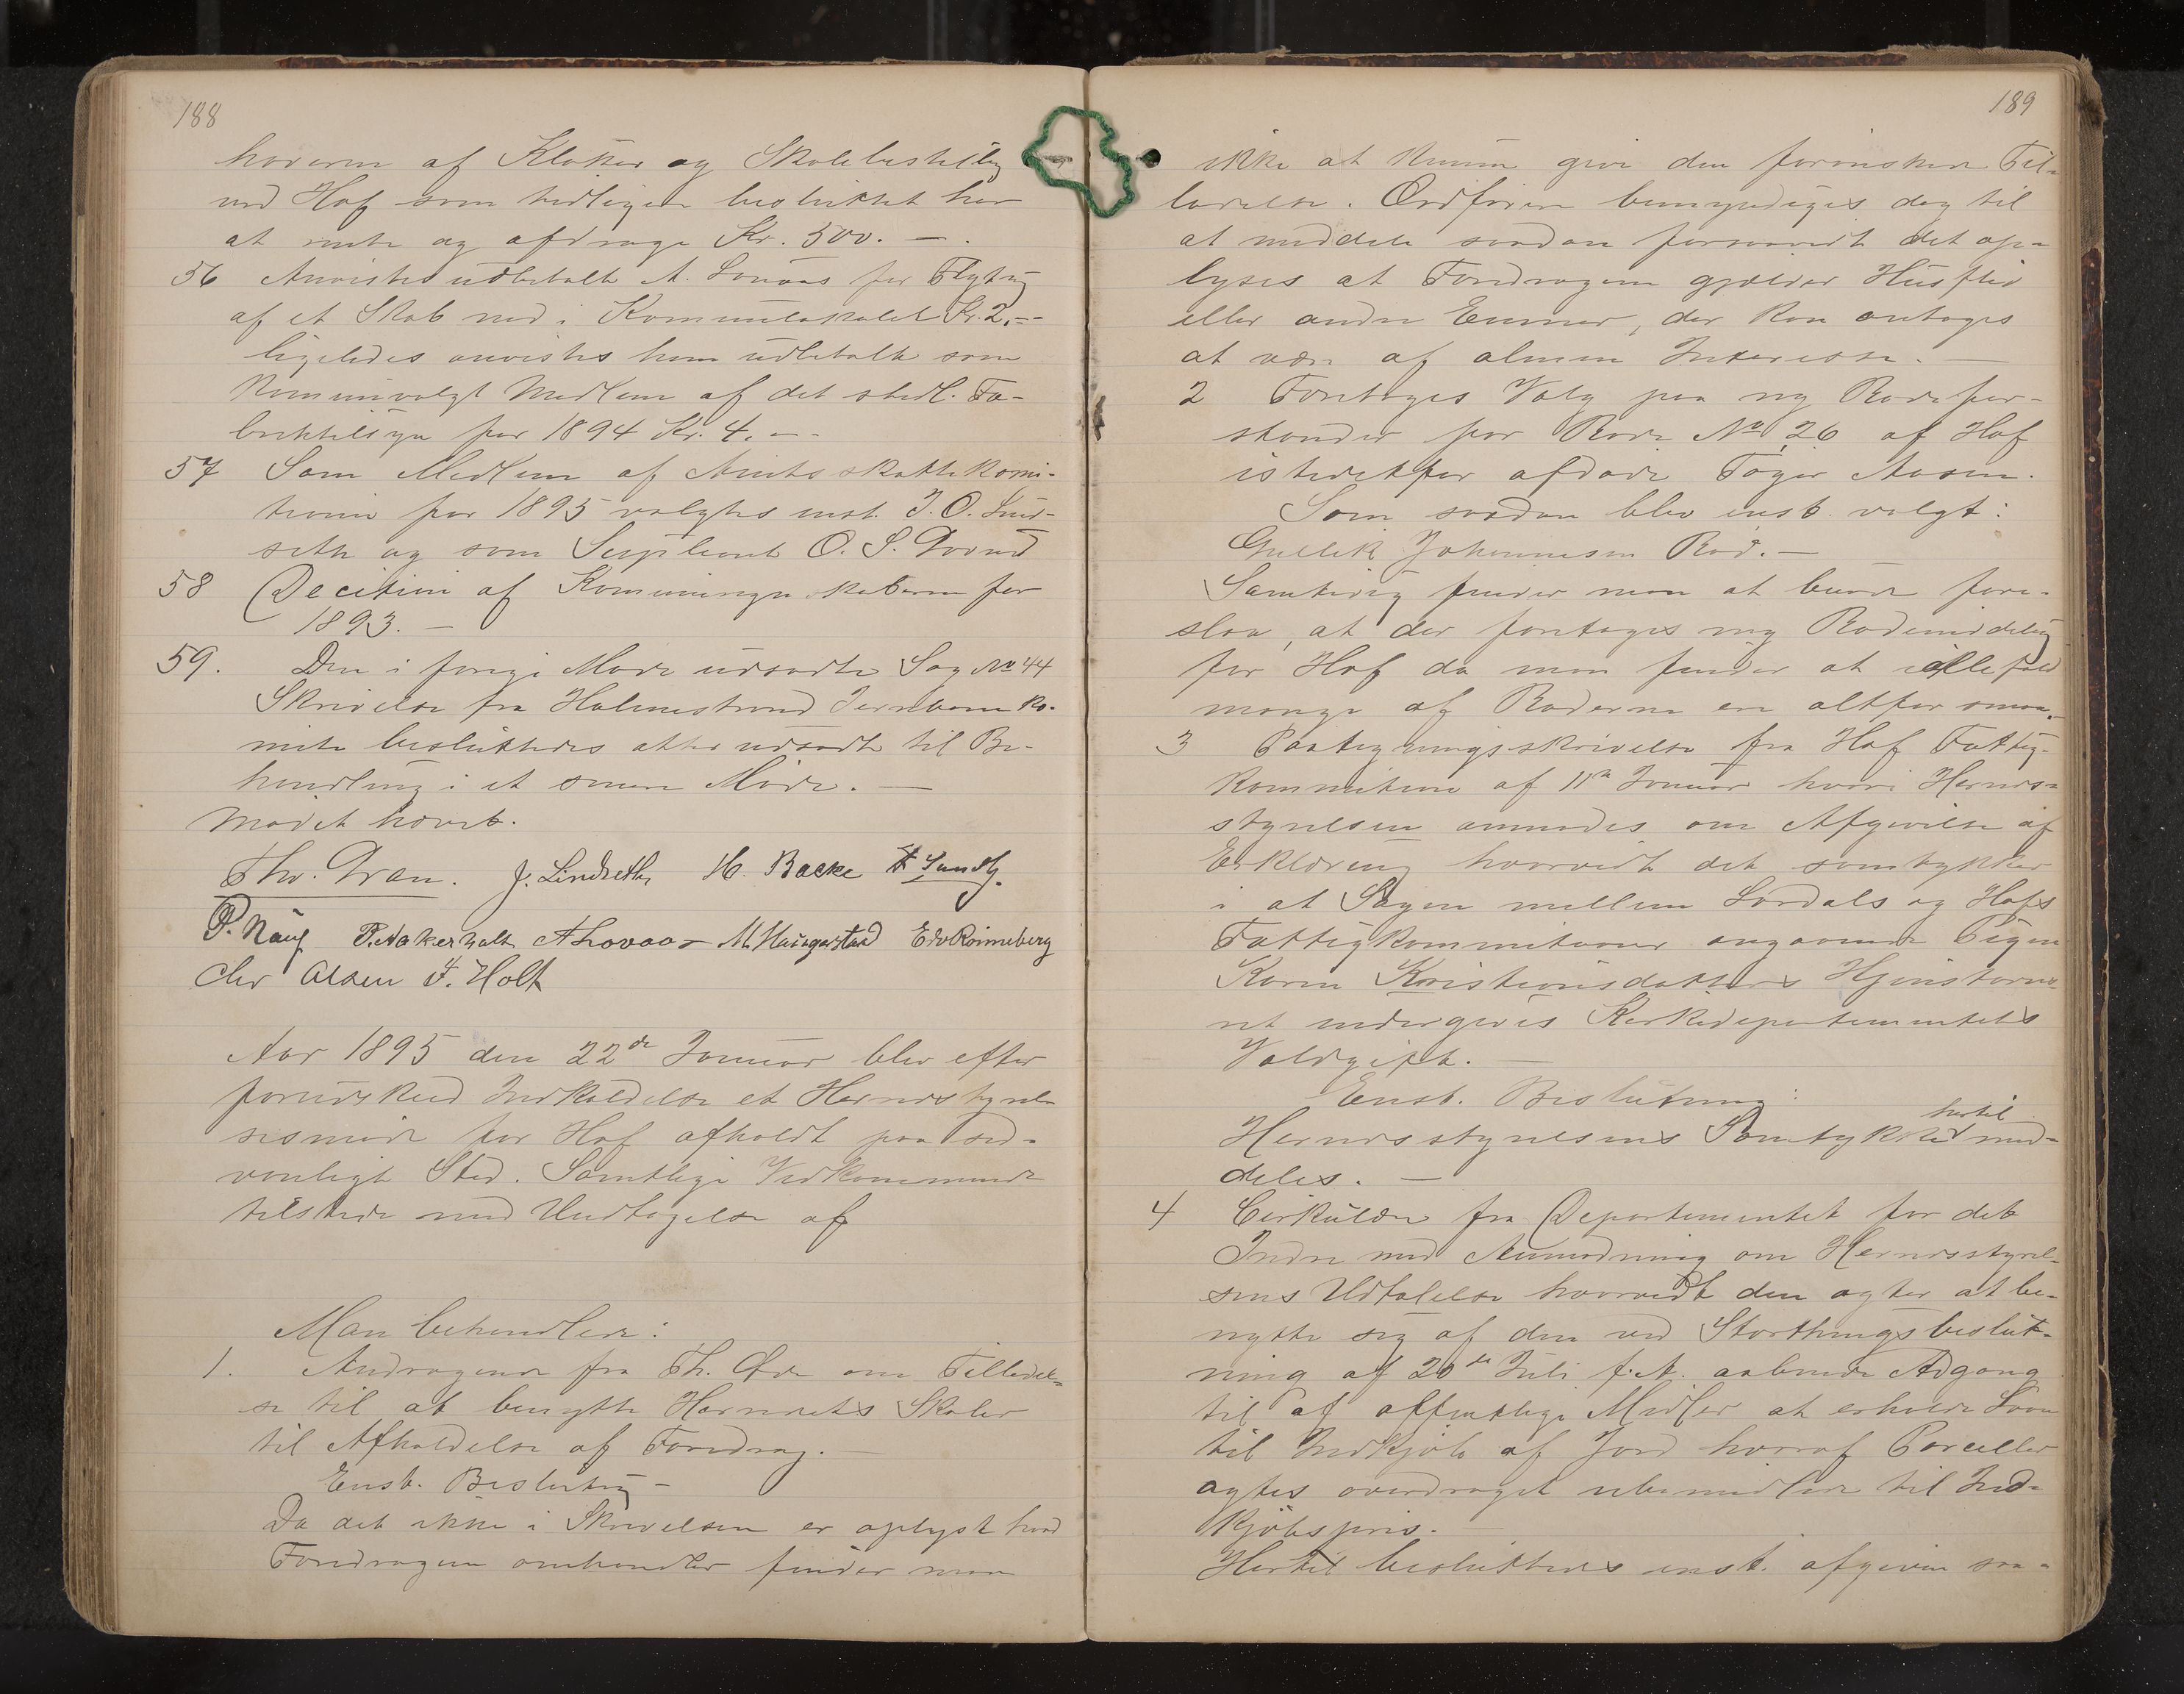 188
haveren af Klokker og Skolebestilling
ved Hof som tidligere besluttet har
at rente og afdrage Kr. 500. —.
56 Anvistes udbetalt A. Lovaas for Flytning
af et Skab ned i Kommunelokalet Kr. 2,--
ligeledes anvistes ham udbetalt som
kommunevalgt Medlem af det stedl. Fa-
briktilsyn for 1894 Kr. 4. --
57 Som Medlem af Amtsskattekomi-
tionen for 1895 valgtes enst. J. O. Lind-
seth og som Supleant O. S.
58 Decition af Kommuneregnskaberne for
1893. —
59. Den i forrige Møde udsatte Sag No 44
Skrivelse fra Holmestrand Jernbaneko-
mite besluttedes atter udsadt til Be-
handling i et senere Møde. —
Mødet hævet.
Thv. Gran. J. Lindseth H. Backe
P. Nauf P. Aakerholt A Lovaas M. Haugestad Edv Rønneberg
Chr Olsen F. Holt
Aar 1895 den 22de Januar blev efter
forudskeed Indkaldelse et Herredsstyrel-
sesmøde for Hof afholdt paa sed-
vanligt Sted. Samtlige Vedkommende
tilstede med Undtagelse af
Man behandlede:
1. Andragende fra Th. om Tilladel-
se til at benytte Herredets Skoler
til Afholdelse af Foredrag. —
Enst. Beslutning —
Da det ikke i Skrivelsen er oplyst hvad
Foredragene omhandler finder man
189
ikke at kunne give den forønskede Til-
ladelse. Ordføren bemyndiges dog til
at meddele saadan forsaavidt det op-
lyses at Foredragene gjælder Husflid
eller andre Emner, der kan antages
at være af almen Interesse. —
2 Foretoges Valg paa ny Rodefor-
stander for Rode No 26 af Hof
istedetfor afdøde Tøger Aasen.
Som saadan blev enst. valgt:
Gullik Johannesen Rød. —
Samtidig finder man at burde fore-
slaa, at der foretages ny Rodeinddeling
for Hof da man finder at iallefald
mange af Roderne ere altfor smaa.
3 Paategningsskrivelse fra Hof Fattig-
kommission af 11te Januar hvori Herreds-
styrelsen anmodes om Afgivelse af
Erklæring hvorvidt det samtykker
i at Sagen mellem Lardals og Hofs
Fattigkommissioner angaaende Pigen
Karen Kristiansdatters Hjemstavns-
ret undergives Kirkedepartementets
Voldgift. —
Enst. Beslutning:
Herredsstyrelsens Samtykke hertil med-
deles. —
4 Cirkulære fra Departementet for det
Indre med Anmodning om Herredsstyrel-
sens Udtalelse hvorvidt den agter at be-
nytte sig af den ved Storthingsbeslut-
ning af 20de Juli f. A. aabnede Adgang
til af offentlige Midler at erholde Laan
til Indkjøb af Jord hvoraf Parceller
agtes overdraget ubemidlede til Ind-
kjøbspris. —
Hertil besluttedes enst. afgiven saa-